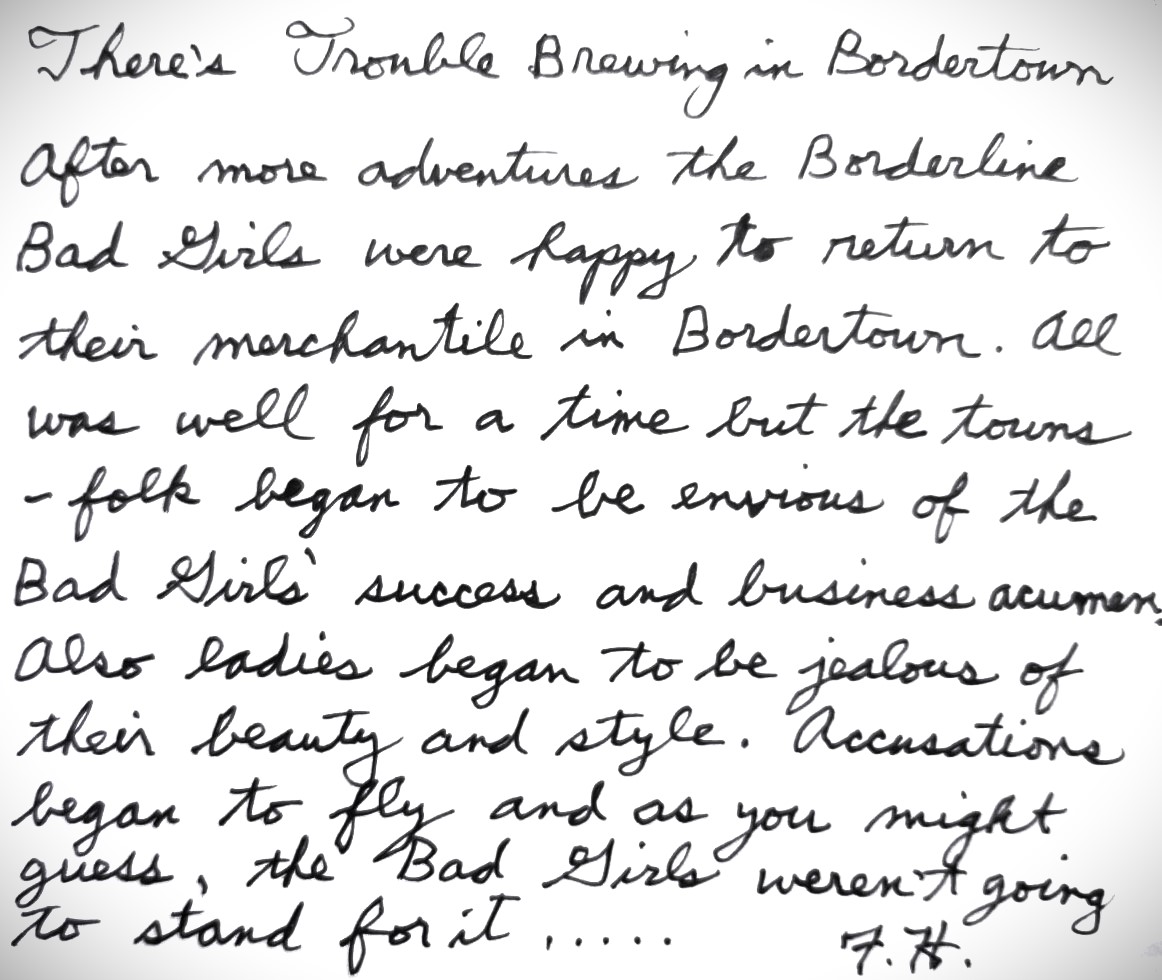 There's Trouble Brewing in Bordertown
After more adventures the Borderline
Bad Girls were happy to return to
their merchantile in Bordertown. All
was well for a time but the towns
- folk began to be envious of the
Bad Girls' success and business acumen.
Also ladies began to be jealous of
their beauty and style. Accusations
began to fly and as you might
guess, the Bad Girls weren't going
to stand for it ..... F.H.